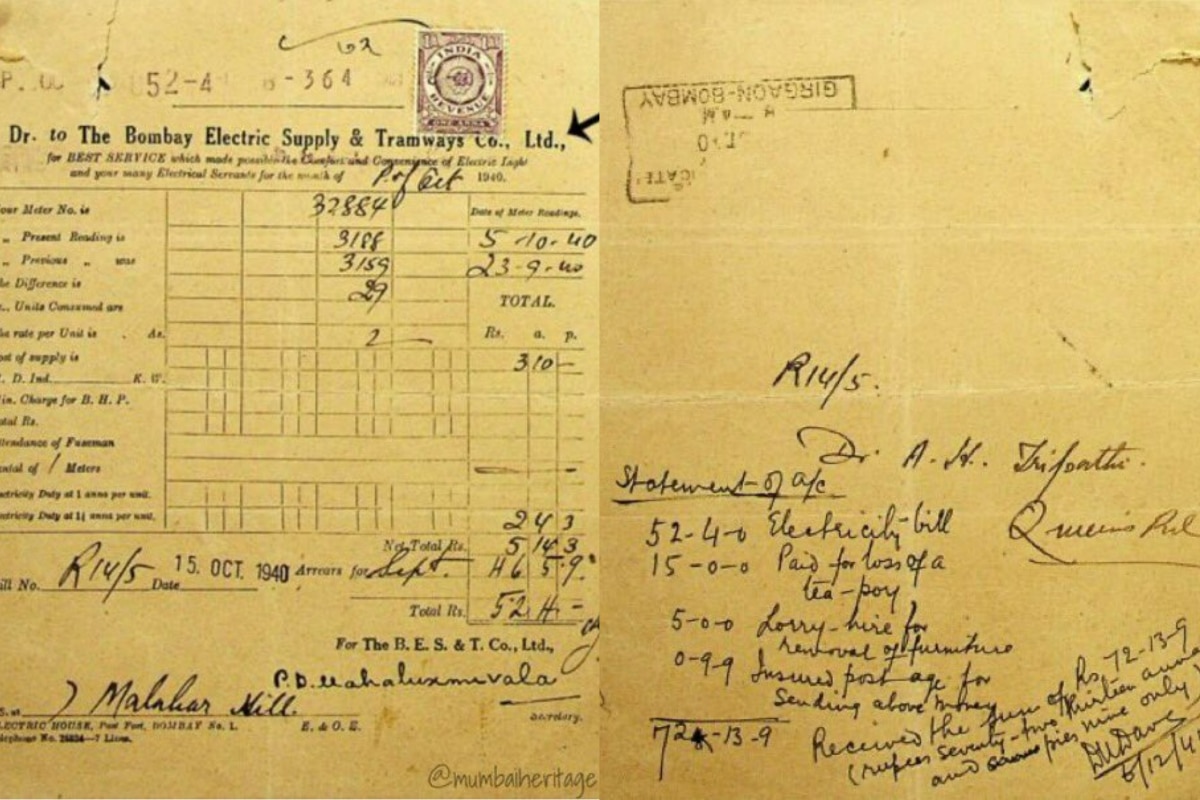 52-4 8-364
INDIA
REVENUE
ONE ANNA
Dr. to The Bombay Electric Supply & Tramways Co., Ltd.,
for BEST SERVICE which made possible the Comfort and Convenience of Electric Light
and your many Electrical Servants for the month of P. of Oct 1940.
our Meter No. is 32884 Date of Meter Readings.
„ Present Reading is 3188 5-10-40
„ Previous „ was 3159 23-9-40
he Difference is 29
Units Consumed are TOTAL.
he rate per Unit is . As. 2 Rs. a. p.
ost of supply is 3 10 -
D. Ind. K. W.
in. Charge for B. H. P.
otal Rs.
ttendance of Fuseman
ental of 1 Meters
ectricity Duty at 1 anna per unit.
ectricity Duty at 1½ annas per unit. 2 4 3
Net Total Rs. 5 14 3
ill No. R14/5 Date 15 OCT. 1940 Arrears for Sept. 46 5 9
Total Rs. 52 4 -
For The B. E. S. & T. Co., Ltd.,
P.D. Mahaluxmivala
Secretary.
Malabar Hill.
LECTRIC HOUSE, Post Fort, BOMBAY No. 1. E. & O. E.
elephone No. 7 Lines.
@mumbaiheritage
GIRGAON-BOMBAY
R14/5.
Dr. A. H. Tripathi.
Statement of a/c
Queens Rd
52-4-0 Electricity bill
15-0-0 Paid for loss of a
tea-poy
5-0-0 Lorry-hire for
removal of furniture
0-9-9 Insured postage for
Sending above money
72-13-9
Received the sum of Rs. 72-13-9
(rupees seventy-two thirteen annas
and pies nine only